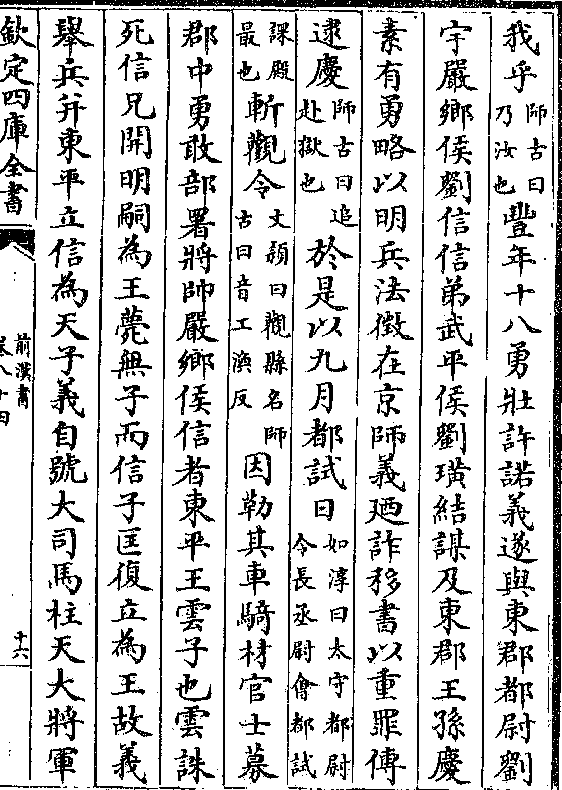 我乎師古曰乃汝也豐年十八勇壯許諾義遂與東郡都尉劉
宇嚴鄉侯劉信信弟武平侯劉璜結謀及東郡王孫慶
素有勇略以明兵法徵在京師義廼詐移書以重罪傳
逮慶師古曰追赴獄也於是以九月都試日如淳曰太守都尉令長丞尉會都試
課殿最也斬觀令文頴曰觀縣名師古曰音工渙反因勒其車騎材官士募
郡中勇敢部署將帥嚴鄉侯信者東平王雲子也雲誅
死信兄開明嗣為王薨無子而信子匡復立為王故義
舉兵并東平立信為天子義自號大司馬柱天大將軍
欽定四庫全書
前漢書
卷八十四
十六